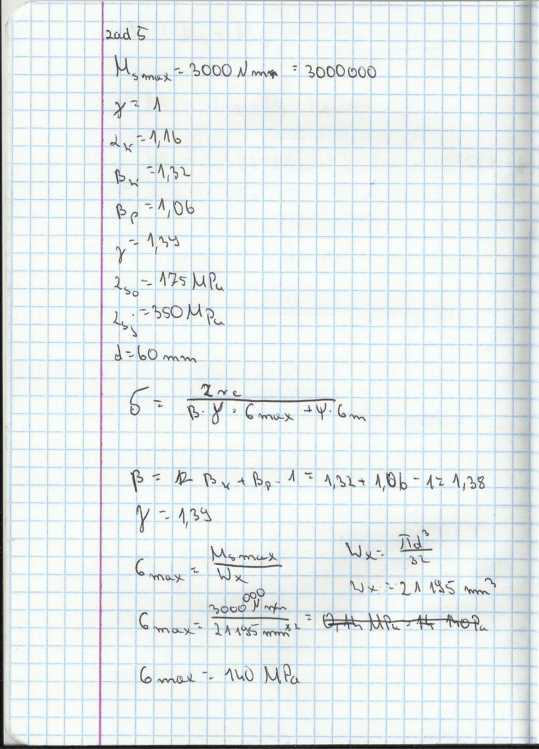 zad 5
M_s max = 3000 N mm = 3000000
γ = 1
α_k = 1,16
β_k = 1,32
β_p = 1,06
γ = 1,39
Z_so = 175 MPa
Z_sj = 350 MPa
d = 60 mm
δ = Z rc / β · γ · σ max + ψ · σ m
β = β_k + β_p - 1 = 1,32 + 1,06 - 1 = 1,38
γ = 1,39
σ max = M_s max / W_x
W_x = πd³ / 32
W_x = 21 195 mm³
σ max = 3000 000 N mm / 21 195 mm² =
σ max = 140 MPa